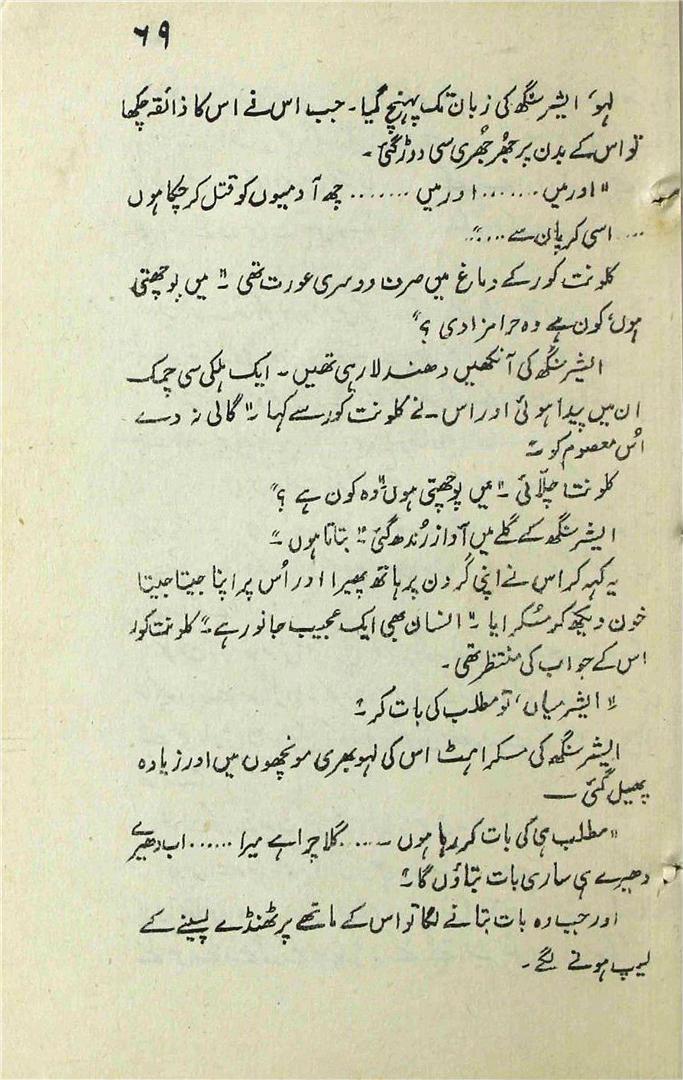 ۶۹
لہو، ایشر سنگھ کی زبان تک پہنچ گیا۔ جب اس نے اس کا ذائقہ چکھا
تو اس کے بدن پر جھُرجھُری سی دوڑ گئی۔
"اور میں ....... اور میں ........ چھ آدمیوں کو قتل کر چکا ہوں
.... اسی کرپان سے ....."
کلونت کور کے دماغ میں صرف دوسری عورت تھی۔ "میں پوچھتی
ہوں، کون ہے وہ حرامزادی؟"
ایشر سنگھ کی آنکھیں دھندلا رہی تھیں۔ ایک ہلکی سی چمک
ان میں پیدا ہوئی اور اس نے کلونت کور سے کہا۔ "گالی نہ دے
اُس معصوم کو۔"
کلونت چلّائی۔ "میں پوچھتی ہوں، وہ کون ہے؟"
ایشر سنگھ کے گلے میں آواز رُندھ گئی "بتاتا ہوں۔"
یہ کہہ کر اس نے اپنی گردن پر ہاتھ پھیرا اور اُس پر اپنا جیتا جیتا
خون دیکھ کر مسُکرایا۔ "انسان بھی ایک عجیب جانور ہے۔" کلونت کور
اس کے جواب کی منتظر تھی۔
"ایشر میاں، تو مطلب کی بات کر۔"
ایشر سنگھ کی مسکراہٹ اس کی لہو بھری مونچھوں میں اور زیادہ
پھیل گئی ــ
"مطلب ہی کی بات کر رہا ہوں ۔.... گلا چرا ہے میرا ...... اب دھیرے
دھیرے ہی ساری بات بتاؤں گا۔"
اور جب وہ بات بتانے لگا تو اس کے ماتھے پر ٹھنڈے پسینے کے
لیپ ہونے لگے۔